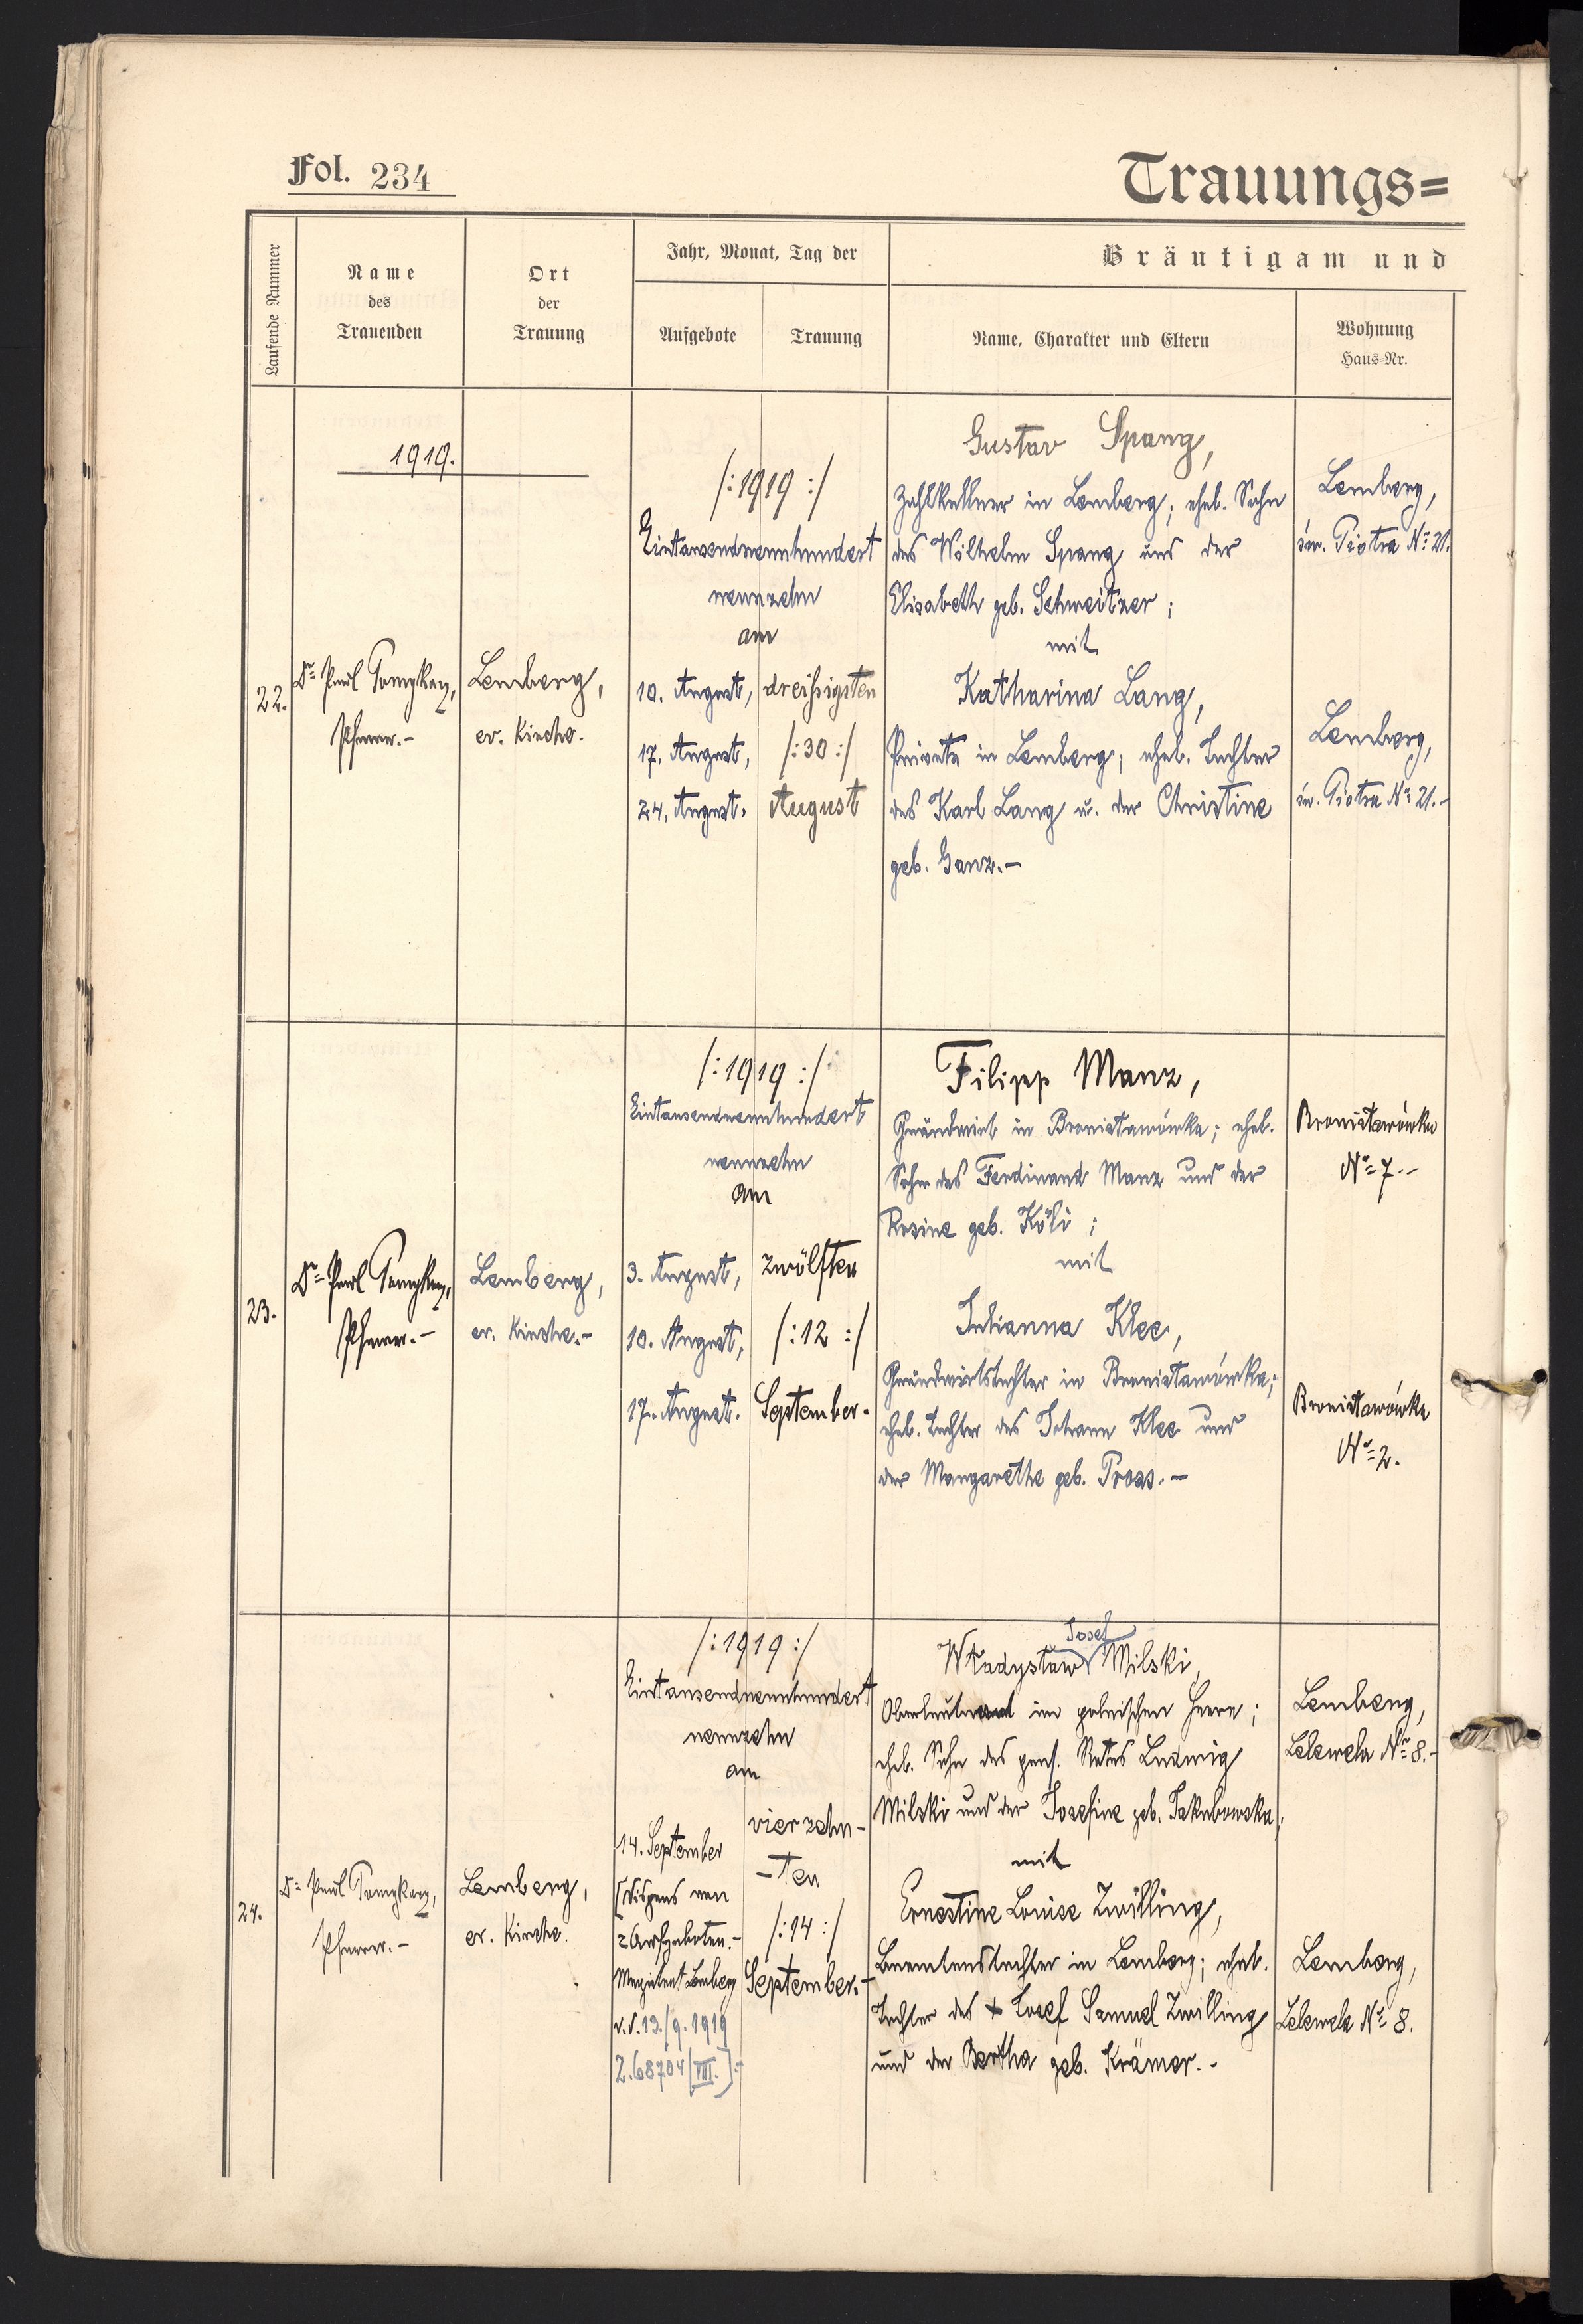 Fol. 234
Trauungs=
Laufende Nummer
Name
des
Trauenden
Ort
der
Trauung
Jahr, Monat, Tag der
Aufgebote
Trauung
Bräutigam und
Name, Charakter und Eltern
Wohnung
Haus=Nr.
1919.
22.
Dr Paul
Pfarrer.-
Lemberg,
ev. Kirche.
/:1919:/
Eintausendneunhundert
neunzehn
am
10. August,
17. August,
24. August.
dreißigsten
/:30:/
August
Gustav Spang,
Zahlkellner in Lemberg; ehel. Sohn
des Wilhelm Spang und der
Elisabeth geb. Schweitzer;
mit
Katharina Lang,
Private in Lemberg; ehel. Tochter
des Karl Lang u. der Christine
geb. Ganz.-
Lemberg,
św. Piotra Nr 21.
Lemberg,
św. Piotra Nr 21.-
23.
Dr Paul
Pfarrer.-
Lemberg,
ev. Kirche.-
/:1919:/
Eintausendneunhundert
neunzehn
am
3. August,
10. August,
17. August.
zwölften
/:12:/
September.
Filipp Manz,
Grundwirt in Bronisławówka; ehel.
Sohn des Ferdinand Manz und der
Rosine geb. Köli;
mit
Julianna Klee,
Grundwirtstochter in Bronisławówka;
ehel. Tochter des Johann Klee und
der Margarethe geb. Pross.-
Bronisławówka
Nr 7.-
Bronisławówka
Nr 2.
24.
Dr Paul
Pfarrer.-
Lemberg,
ev. Kirche.
/:1919:/
Eintausendneunhundert
neunzehn
am
14. September
[Dispens von
2 Aufgeboten.-
Magistrat Lemberg
v. 13./9. 1919
Z. 68704/VIII.]-
vierzehn-
-ten
/:14:/
September.-
Josef
Władysław Milski,
Oberleutnant im polnischen Heere;
ehel. Sohn des pens. Rates Ludwig
Milski und der Josefine geb. Jakubowska;
mit
Ernestine Louise Zwilling,
Beamtenstochter in Lemberg; ehel.
Tochter des + Josef Samuel Zwilling
und der Bertha geb. Krämer.-
Lemberg,
Lelewela Nr 8.-
Lemberg,
Lelewela Nr 8.